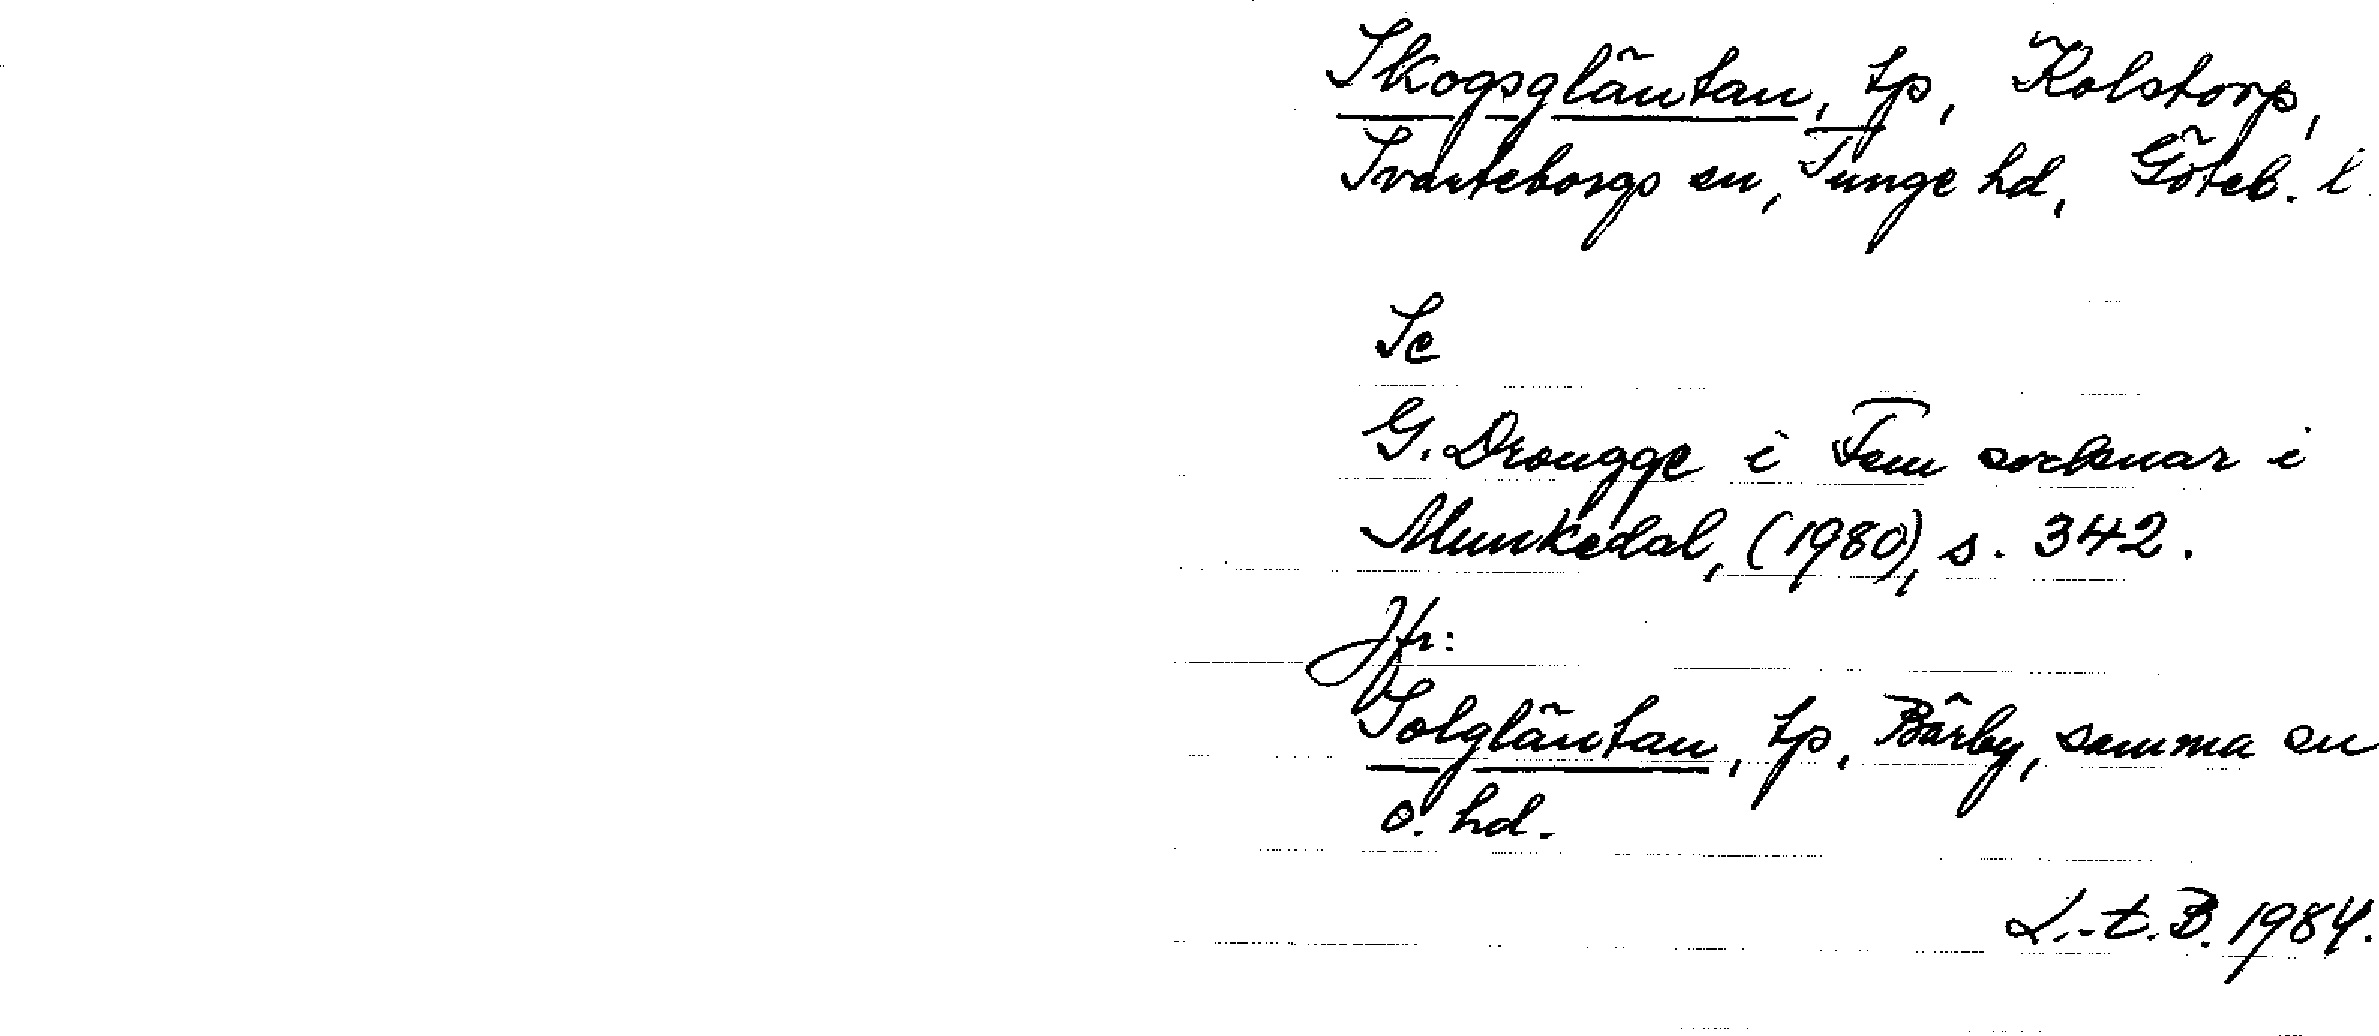 Skogsgläntan, tp, Kolstorp,
Svarteborgs sn, Tunge hd, Göteb. l.
Se
G. Drougge i Fem socknar i
Munkedal, (1980), s. 342.
Jfr:
Solgläntan, tp. Bärby, samma sn
o. hd.
L.-t. B. 1984.